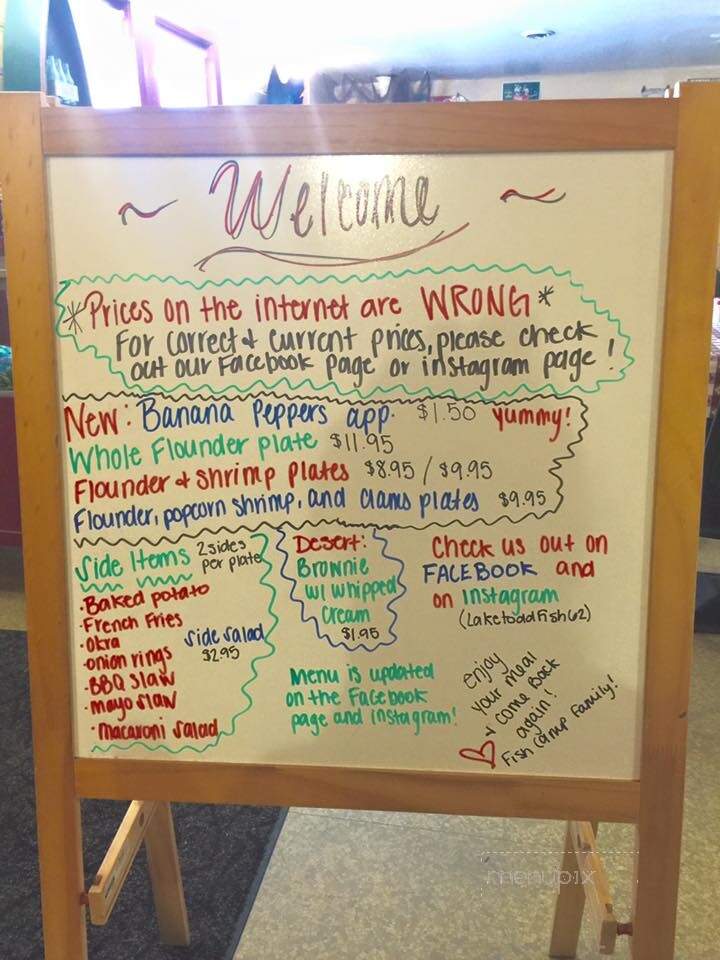 ~ Welcome ~
*Prices on the internet are WRONG*
For correct & current prices, please check
out our Facebook page or instagram page!
New: Banana Peppers app. $1.50 yummy!
Whole Flounder plate $11.95
Flounder & shrimp plates $8.95 / $9.95
Flounder, popcorn shrimp, and clams plates $9.95
Side Items 2 sides
per plate
·Baked potato
·French Fries
·okra
·onion rings
·BBQ slaw
·mayo slaw
·macaroni salad
side salad
$2.95
Desert:
Brownie
w/ whipped
cream
$1.95
Check us out on
FACEBOOK and
on instagram
(Laketoddfish62)
Menu is updated
on the Facebook
page and instagram!
enjoy
your meal
& come Back
again!
Fish camp Family!
menupix